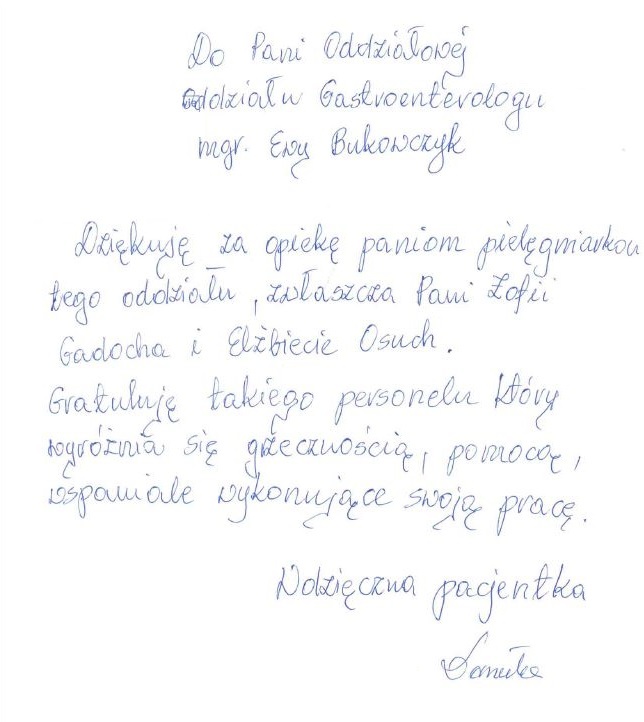 Do Pani Oddziałowej
Oddziału Gastroenterologu
mgr. Ewy Bukowczyk
Dziękuję za opiekę paniom pielęgniarkom
tego oddziału, zwłaszcza Pani Zofii
Gadocha i Elżbiecie Osuch.
Gratuluję takiego personelu który
wyróżnia się grzecznością, pomocą,
wspaniale wykonujące swoją pracę.
Wdzięczna pacjentka